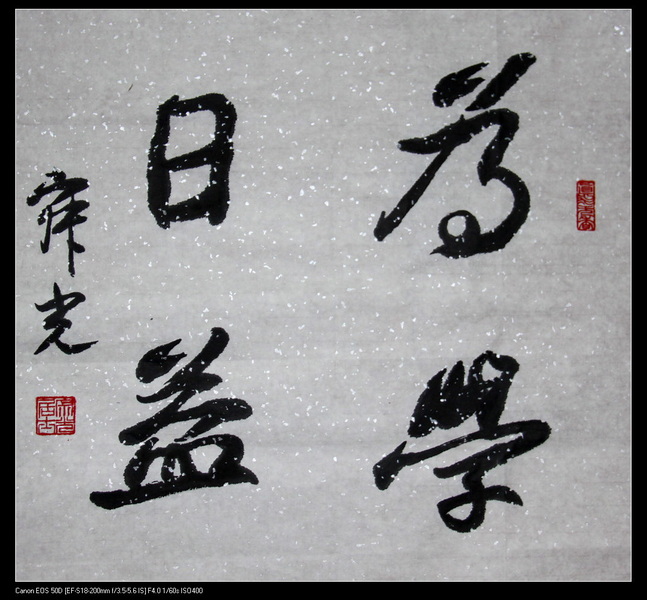 為學
日益
Canon EOS 50D [EF-S18-200mm f/3.5-5.6 IS] F4.0 1/60s ISO400